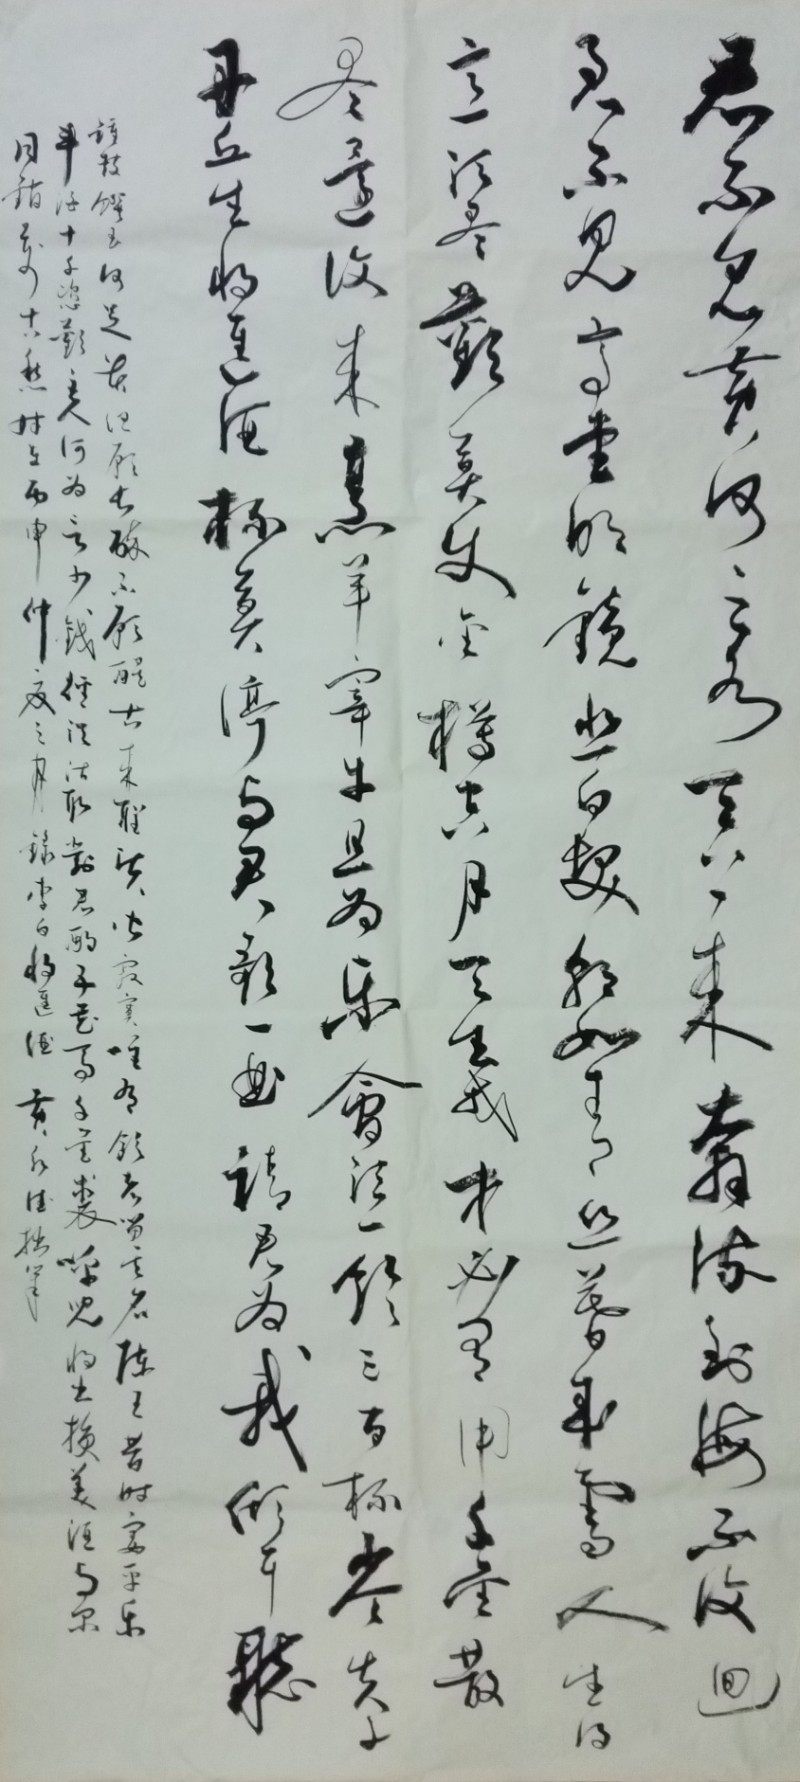 君不见黄河之水天上来奔流到海不复回
君不见高堂明镜悲白发朝如青丝暮成雪人生得
意须尽欢莫使金樽空月天生我材必有用千金散
尽还复来烹羊宰牛且为乐会须一饮三百杯岑夫子
丹丘生将进酒杯莫停与君歌一曲请君为我倾耳听
钟鼓馔玉何足贵但愿长醉不愿醒古来圣贤皆寂寞唯有饮者留其名陈王昔时宴平乐
斗酒十千恣欢谑主人何为言少钱径须沽取对君酌五花马千金裘呼儿将出换美酒与尔
同销万古愁 时在丙申仲夏之月录李白将进酒